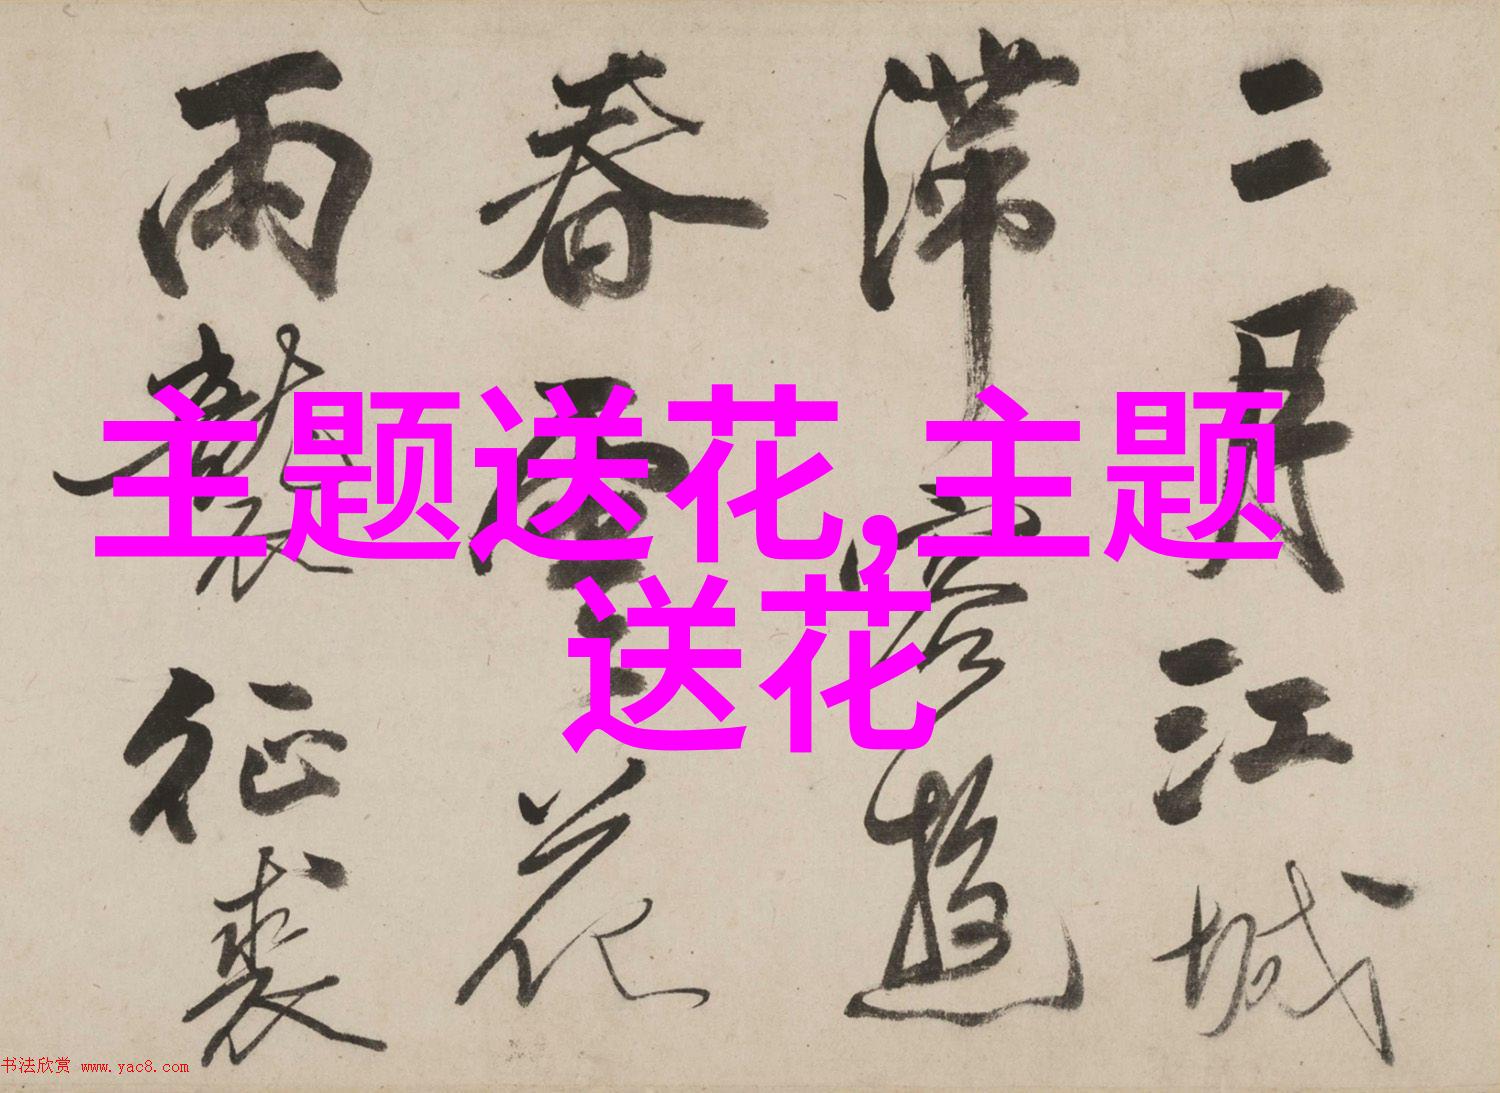 二月江城
滞客遊
春花
雨製征裘
主题送花,主题
送花
书法欣赏 www.yac8.com